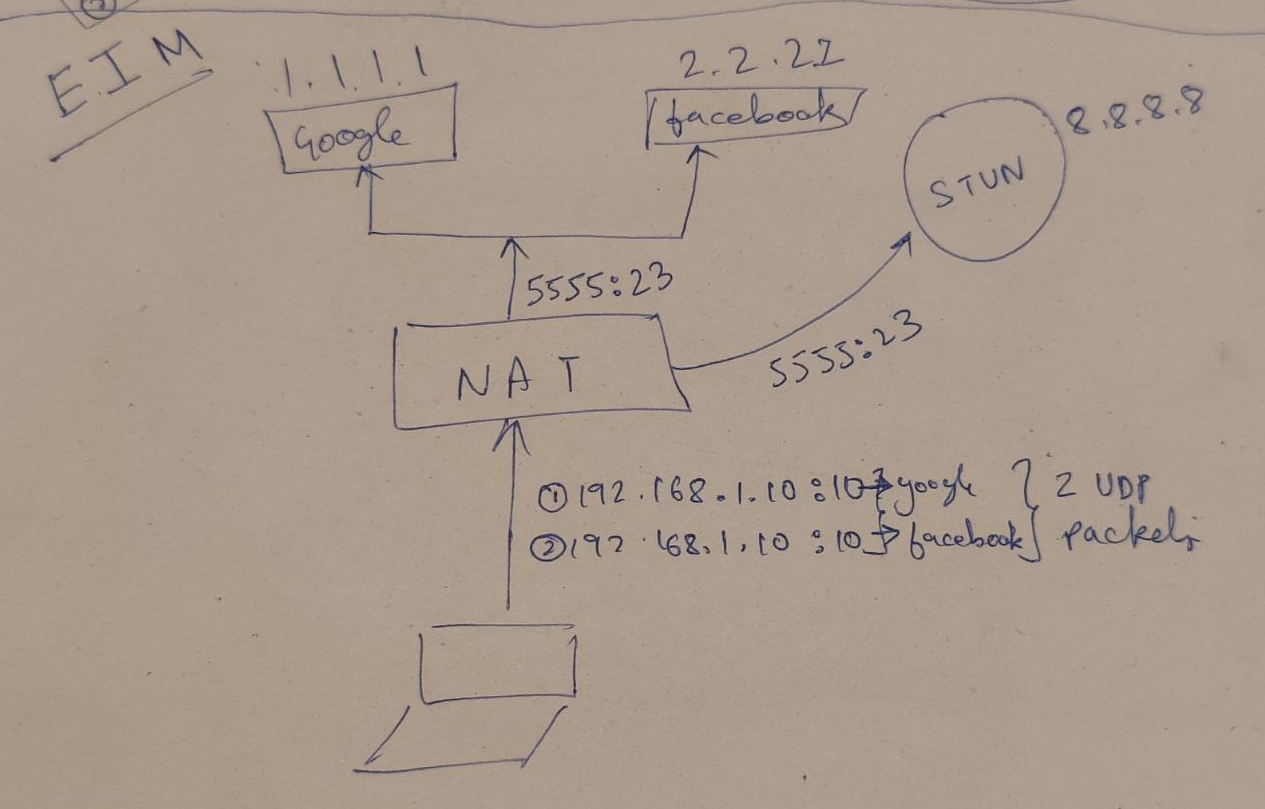 ②
E.I.M
1.1.1.1
Google
2.2.2.2
facebook
8.8.8.8
STUN
5555:23
NAT
5555:23
① 192.168.1.10:10 → google } 2 UDP
② 192.168.1.10:10 → facebook } packets